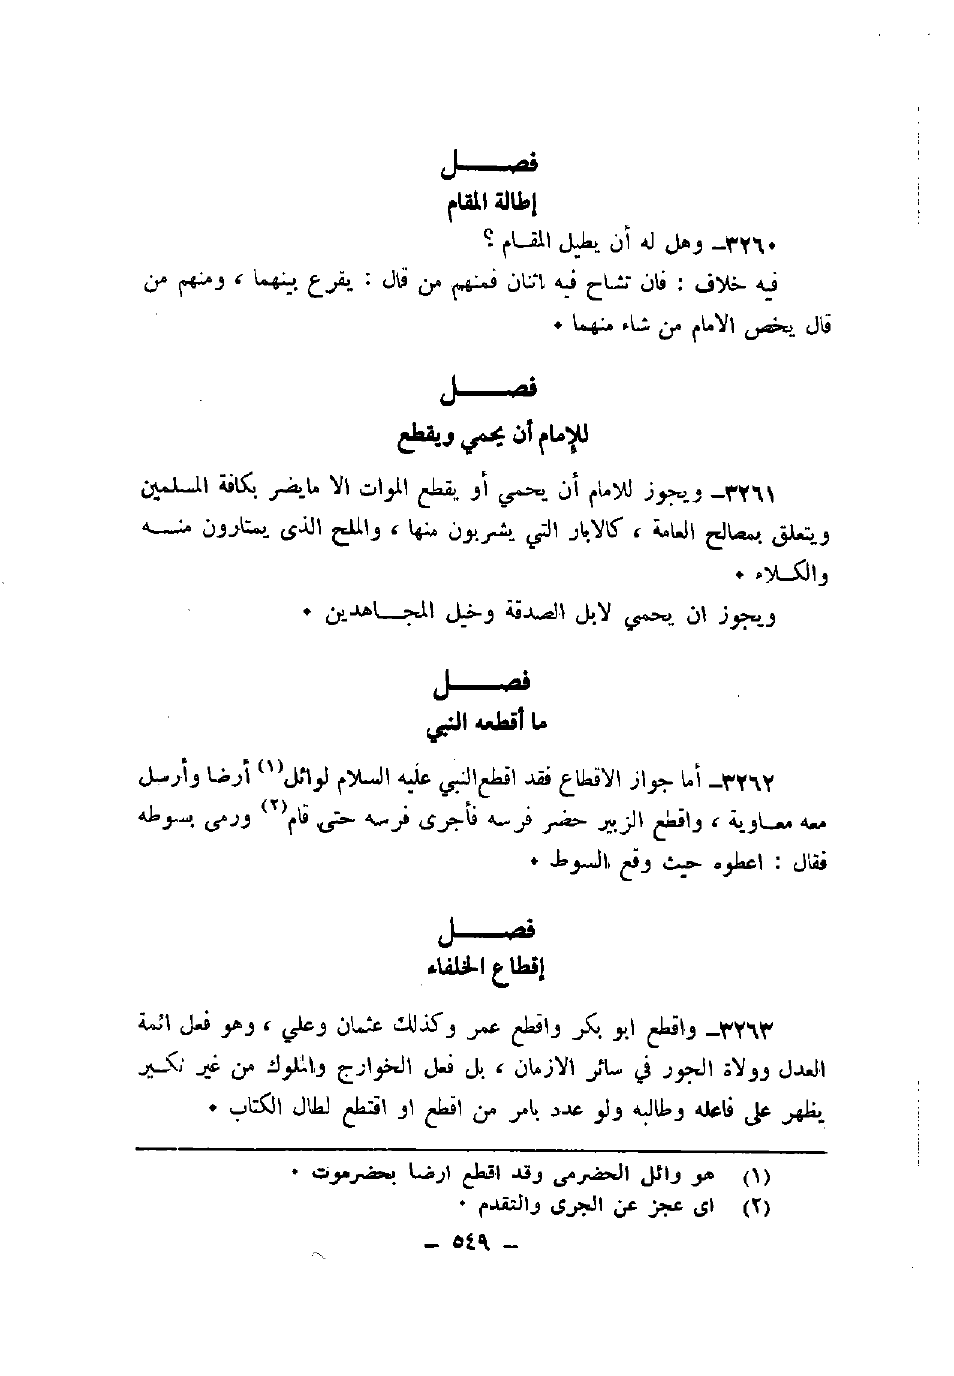 فصـــــل
إطالة المقام
٣٢٦٠ـ وهل له أن يطيل المقـام ؟
فيه خلاف : فان تشاح فيه اثنان فمنهم من قال : يقرع بينهما ، ومنهم من
قال يخص الامام من شاء منهما ٠
فصـــــل
للإمام أن يحمي ويقطع
٣٢٦١ـ ويجوز للامام أن يحمي أو يقطع الموات الا مايضر بكافة المسلمين
ويتعلق بمصالح العامة ، كالابار التي يشربون منها ، والملح الذى يمتارون منـــه
والكـلاء ٠
ويجوز ان يحمي لابل الصدقة وخيل المجــاهدين ٠
فصـــــل
ما أقطعه النبي
٣٢٦٢ـ أما جواز الاقطاع فقد اقطع النبي عليه السلام لوائل(١) أرضا وأرسل
معه معـاوية ، واقطع الزبير حضر فرسه فأجرى فرسه حتى قام(٢) ورمى بسوطه
فقال : اعطوه حيث وقع السوط ٠
فصـــــل
إقطاع الخلفاء
٣٢٦٣ـ واقطع ابو بكر واقطع عمر وكذلك عثمان وعلي ، وهو فعل ائمة
العدل وولاة الجور في سائر الازمان ، بل فعل الخوارج والملوك من غير نكـير
يظهر على فاعله وطالبه ولو عدد بامر من اقطع او اقتطع لطال الكتاب ٠
(١) هو وائل الحضرمى وقد اقطع ارضا بحضرموت ٠
(٢) اى عجز عن الجرى والتقدم ٠
ـ ٥٤٩ ـ